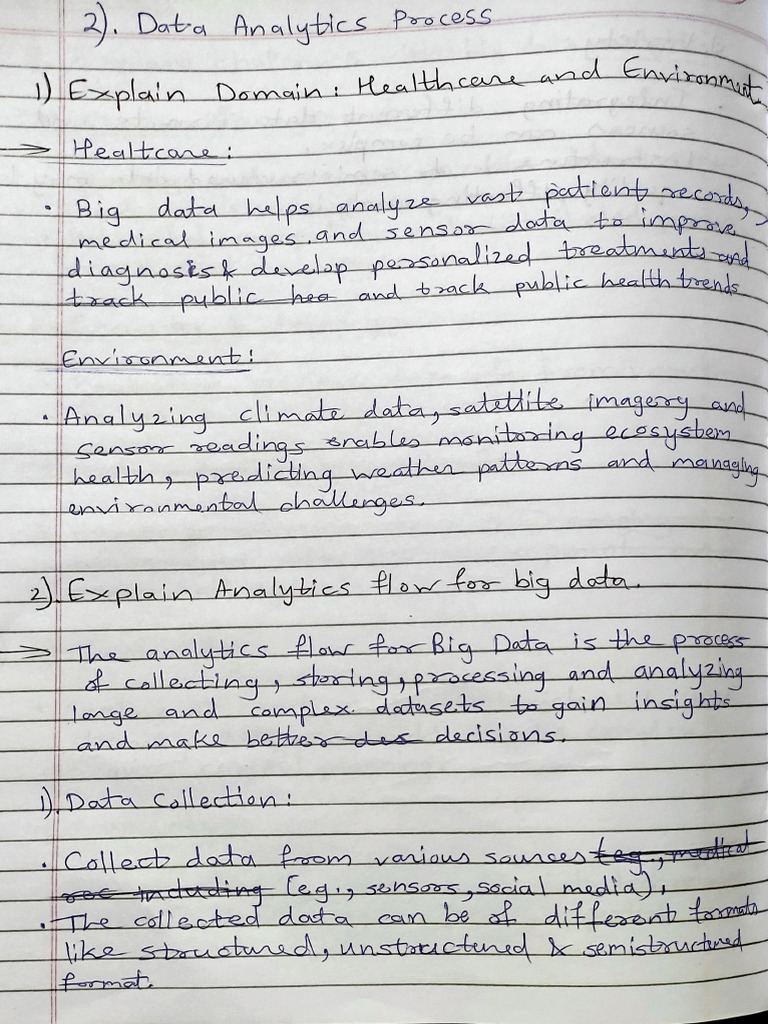 2). Data Analytics Process
1) Explain Domain: Healthcare and Environment
→ Healtcare:
• Big data helps analyze vast patient records,
medical images, and sensor data to improve
diagnosis & develop personalized treatments and
track public hea and track public health trends
Environment:
• Analyzing climate data, satellite imagery and
sensor readings enables monitoring ecosystem
health, predicting weather patterns and managing
environmental challenges.
2). Explain Analytics flow for big data.
→ The analytics flow for Big Data is the process
of collecting, storing, processing and analyzing
large and complex datasets to gain insights
and make better des decisions.
1). Data Collection:
• Collect data from various sources (eg., medical
rec including (e.g., sensors, social media),
• The collected data can be of different formats
like structured, unstructured & semistructured
format.